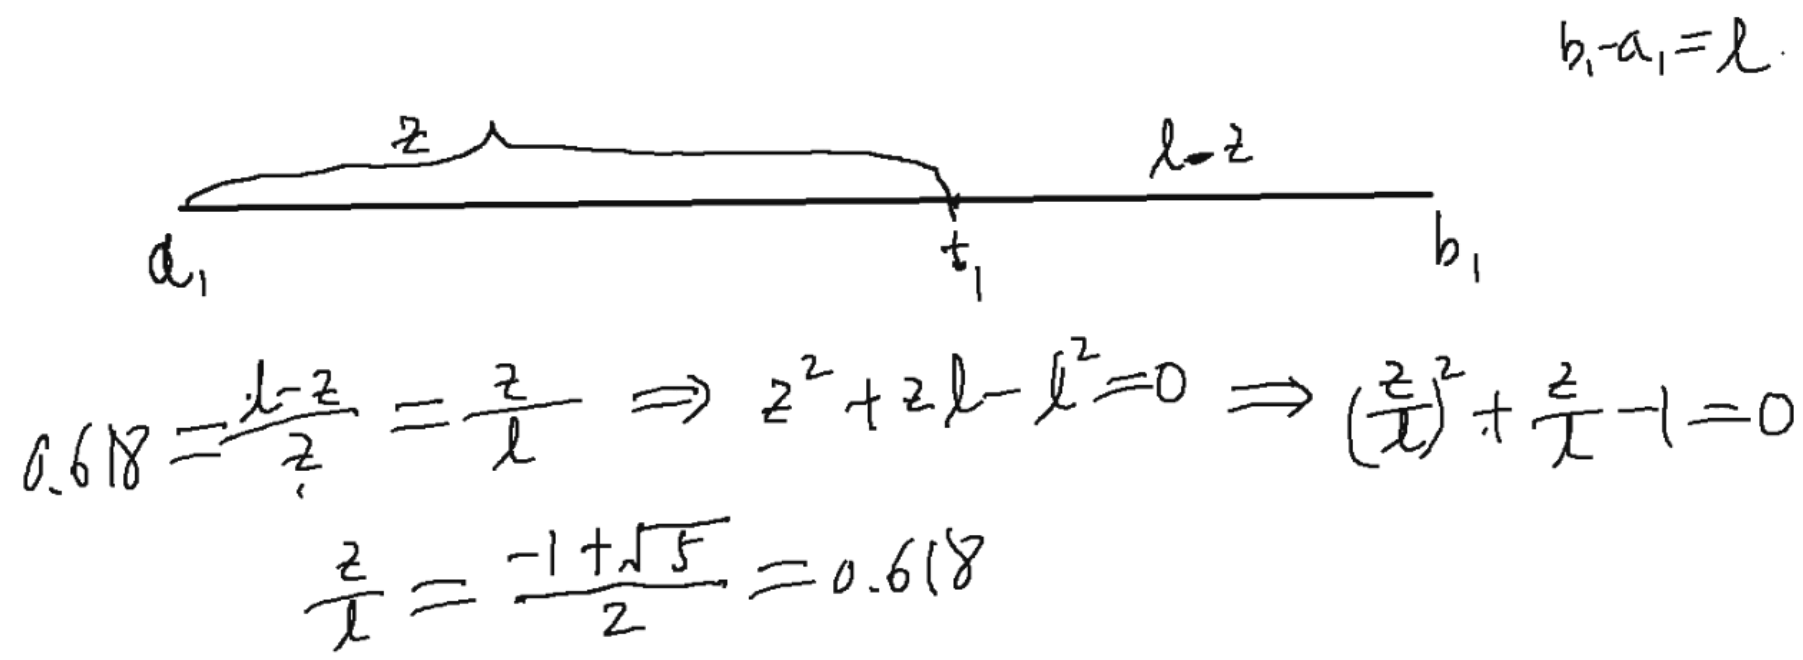 b₁-a₁=l.
z l-z
a₁ t₁ b₁
0.618 = (l-z)/z = z/l ⇒ z² + zl - l² = 0 ⇒ (z/l)² + z/l - 1 = 0
z/l = (-1+√5)/2 = 0.618